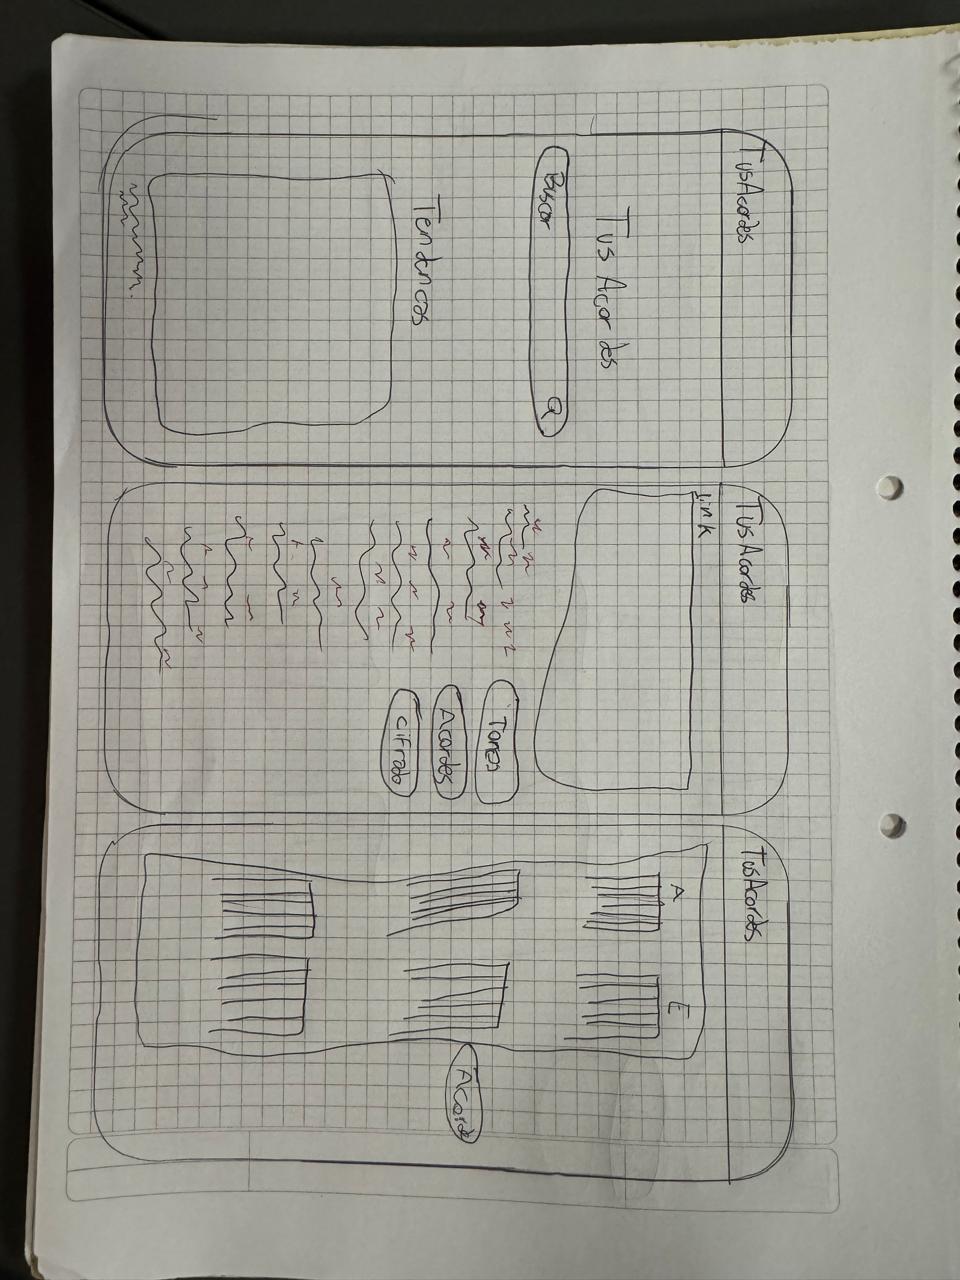 TusAcordes
Tus Acordes
Buscar
Tendncas
TusAcordes
link
Tonos
Acordes
cifrado
TusAcordes
A
E
Acorde